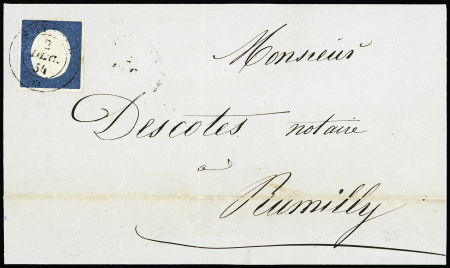 2
DEC.
54
Monsieur
Descotes notaire
à
Rumilly